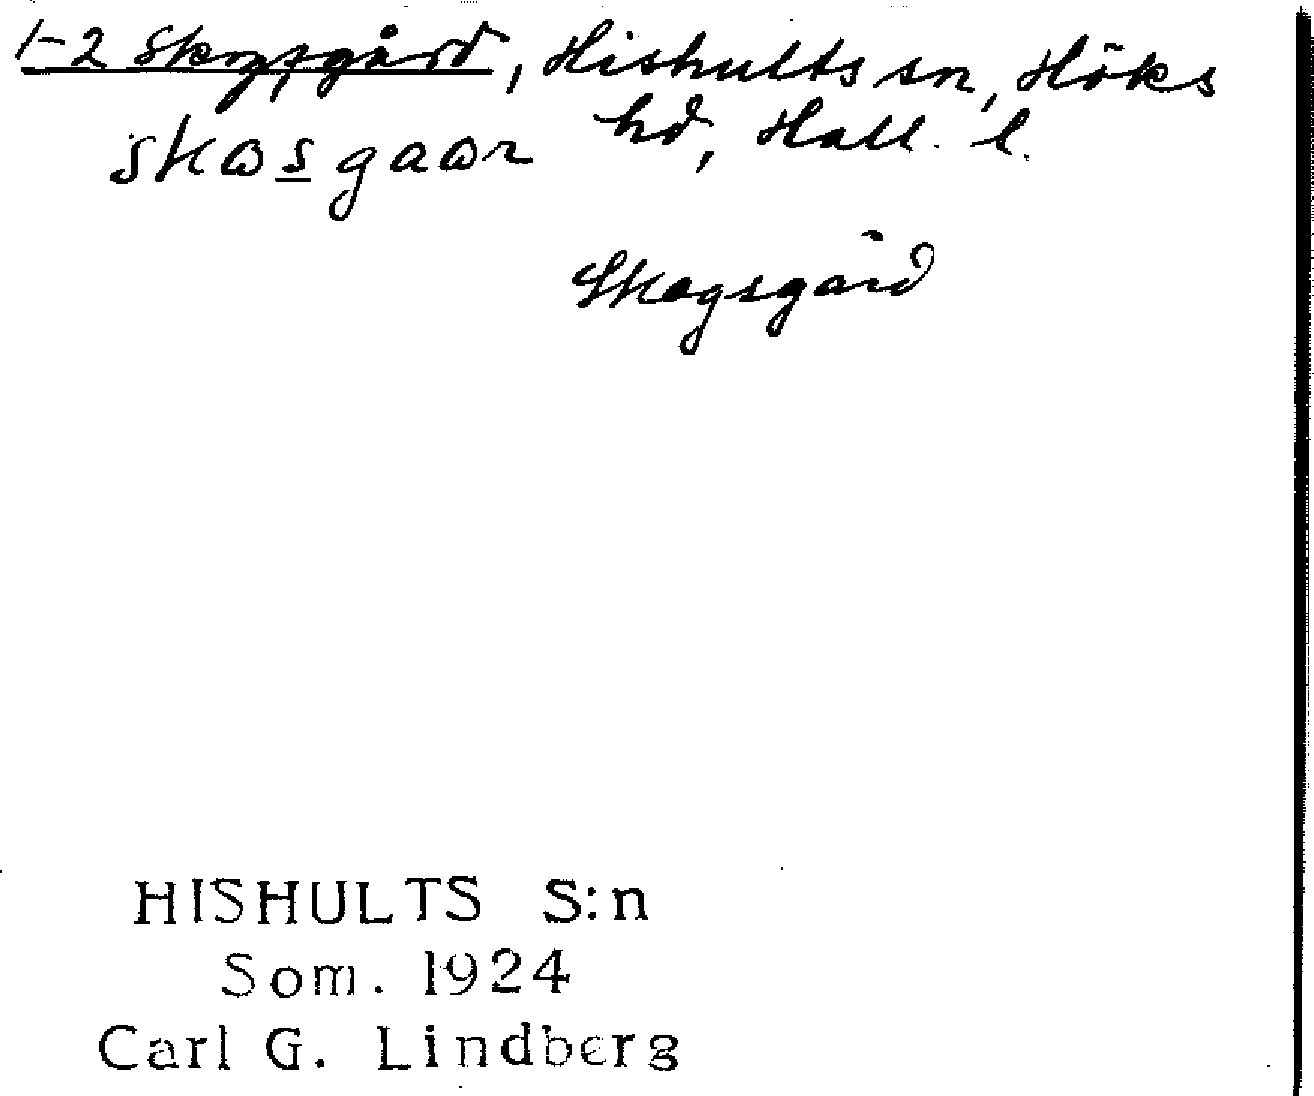 1-2 Skogsgård, Hishults sn, Höks
hd, Hall. l.
skɷsgaɷr
Skogsgård
HISHULTS S:n
Som. 1924
Carl G. Lindberg